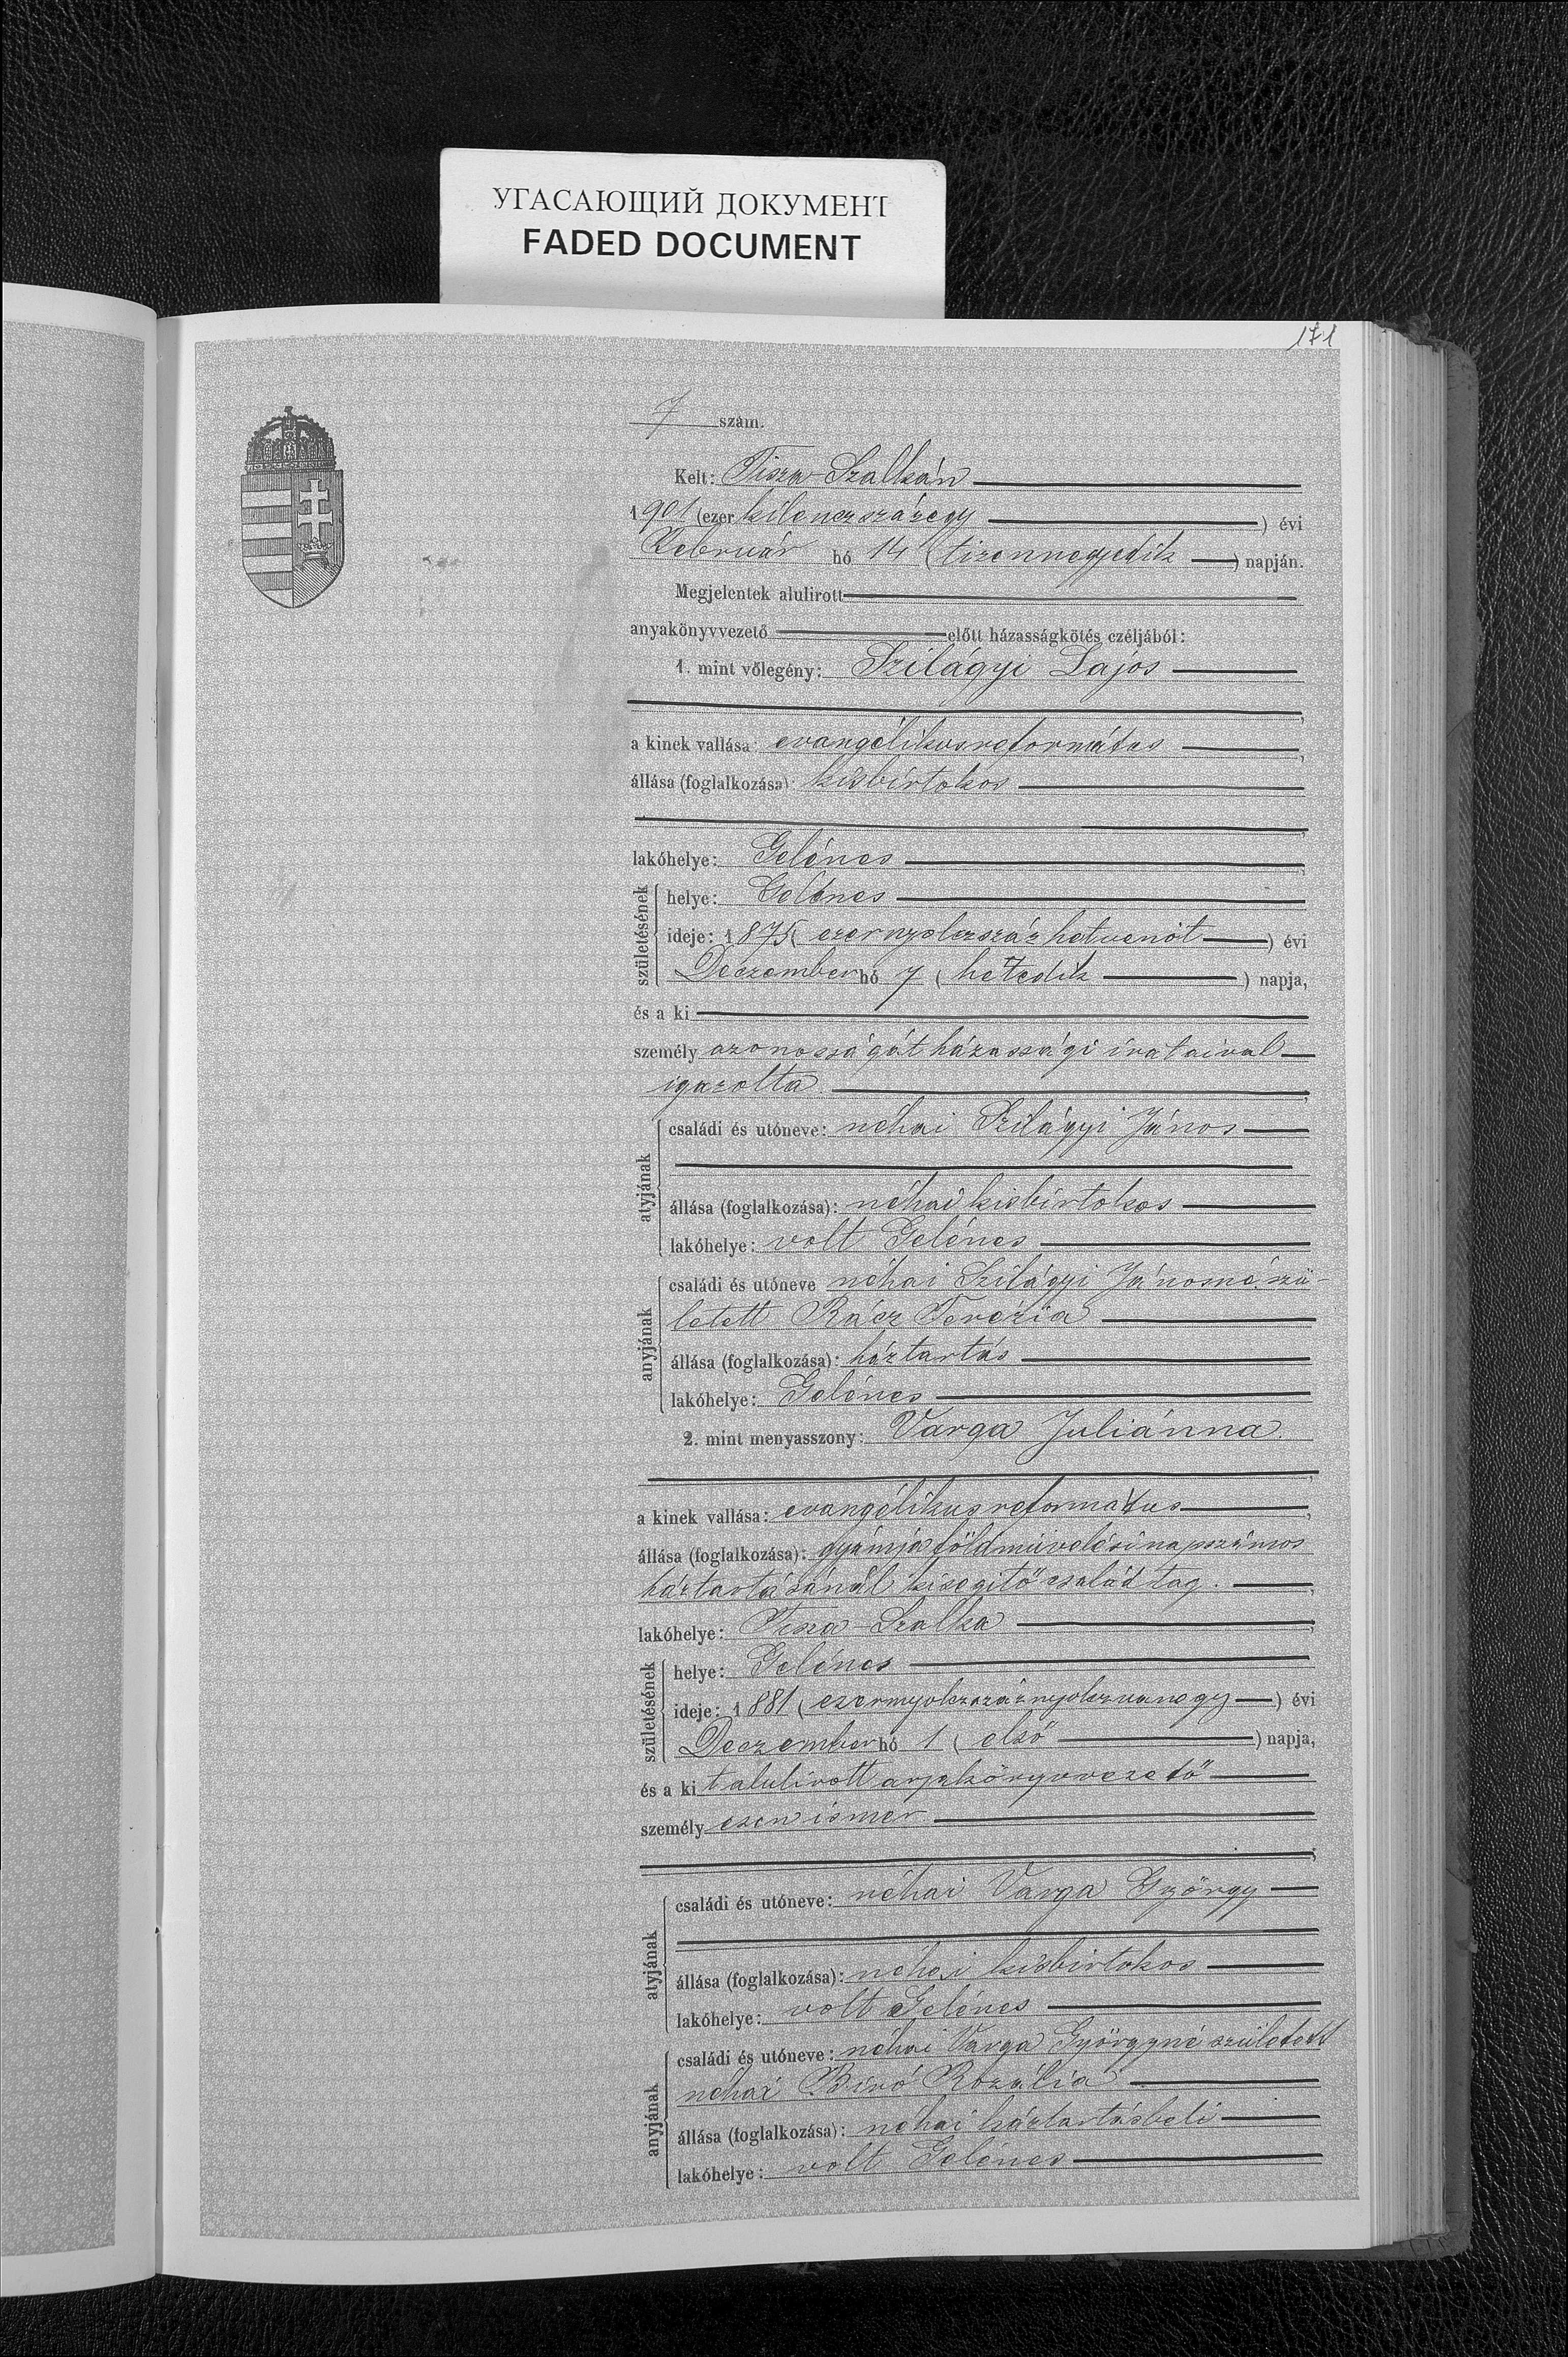 УГАСАЮЩИЙ ДОКУМЕНТ
FADED DOCUMENT
171
7 szám.
Kelt: Tisza-Szalkán
1901 (ezer kilenczszázegy) évi
Február hó 14 (tizennegyedik) napján.
Megjelentek alulirott
anyakönyvvezető előtt házasságkötés czéljából:
1. mint vőlegény: Szilágyi Lajos
a kinek vallása: evangélikus református,
állása (foglalkozása): kisbirtokos
lakóhelye: Gelénes,
születésének
helye: Gelénes
ideje: 1875 (ezernyolczszázhetvenöt) évi
Deczember hó 7 (hetedik) napja,
és a ki
személy azonosságát házassági irataival
igazolta,
atyjának
családi és utóneve: néhai Szilágyi János
állása (foglalkozása): néhai kisbirtokos
lakóhelye: volt Gelénes
anyjának
családi és utóneve néhai Szilágyi Jánosné szü-
letett Rácz Terézia
állása (foglalkozása): háztartás
lakóhelye: Gelénes
2. mint menyasszony: Varga Juliánna
a kinek vallása: evangélikus református,
állása (foglalkozása): gyámja földmivelési napszámos
háztartásánál kisegitő családtag.
lakóhelye: Tisza-Szalka,
születésének
helye: Gelénes
ideje: 1881 (ezernyolczszáznyolczvanegy) évi
Deczember hó 1 (első) napja,
és a ki t alulirott anyakönyvvezető
személy esen ismer
atyjának
családi és utóneve: néhai Varga György
állása (foglalkozása): néhai kisbirtokos
lakóhelye: volt Gelénes
anyjának
családi és utóneve: néhai Varga Györgyné született
néhai Biró Rozália
állása (foglalkozása): néhai háztartásbeli
lakóhelye: volt Gelénes